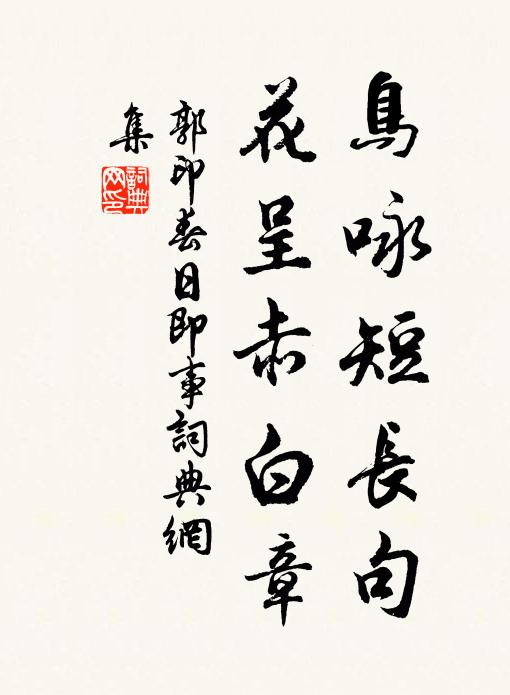 鳥咏短長句
花呈赤白章
郭印春日即事詞典網
集
詞典
网印